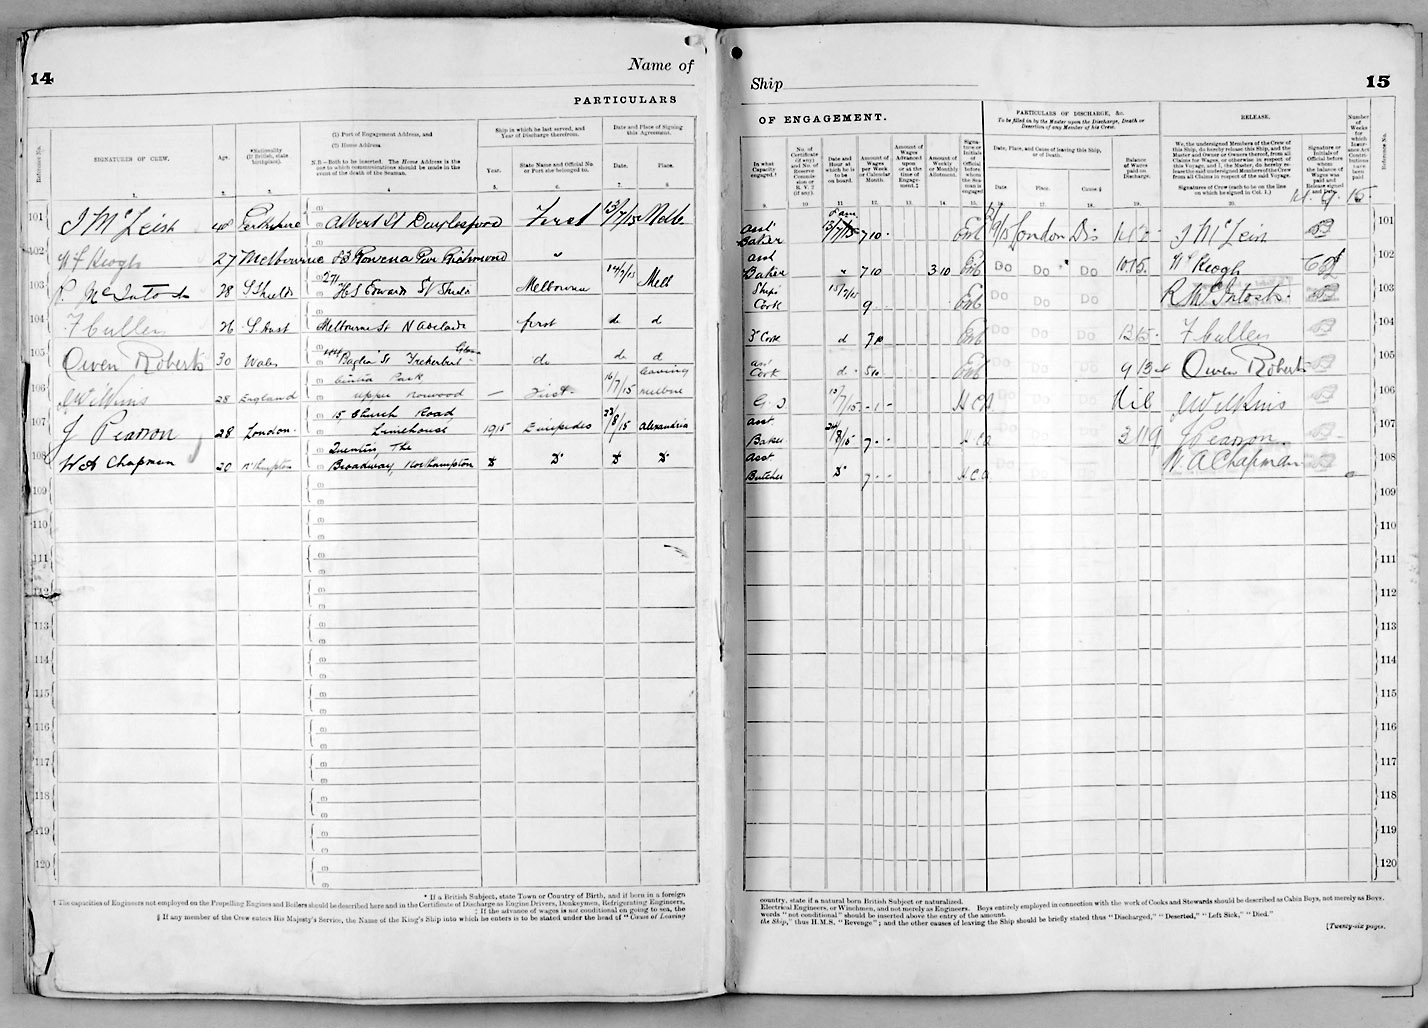 14
Name of
PARTICULARS
Reference No.
SIGNATURES OF CREW.
Age.
*Nationality
(If British, state
birthplace).
(1) Port of Engagement Address, and
(2) Home Address.
N.B.—Both to be inserted. The Home Address is the
one to which communications should be made in the
event of the death of the Seaman.
Ship in which he last served, and
Year of Discharge therefrom.
Year.
State Name and Official No.
or Port she belonged to.
Date and Place of Signing
this Agreement.
Date.
Place.
1. 2. 3. 4. 5. 6. 7. 8.
101 J McLeish 48 Perthshire Albert St Daylesford First 13/7/15 Melb
102 W F Keogh 27 Melbourne Rowena Pde Richmond "
103 R. McIntosh 28 S Shields H S Edward St Shields Melbourne 14/7/15 Melb
104 F Cullen 26 S. Aust Melbourne St N Adelaide first do d
105 Owen Roberts 30 Wales St Treherbert do do d
106 J Wilkins 28 England Park
Upper Norwood — First 16/7/15 leaving Melbne
107 J Pearson 28 London. 15 Church Road
Limehouse 1915 Euripides 23/8/15 Alexandria
108 W A Chapman 20 N'hampton Quentin, The
Broadway, Northampton Do Do Do Do
109
110
111
112
113
114
115
116
117
118
119
120
* If a British Subject, state Town or Country of Birth, and if born in a foreign
† The capacities of Engineers not employed on the Propelling Engines and Boilers should be described here and in the Certificate of Discharge as Engine Drivers, Donkeymen, Refrigerating Engineers,
‡ If the advance of wages is not conditional on going to sea, the
§ If any member of the Crew enters His Majesty's Service, the Name of the King's Ship into which he enters is to be stated under the head of "Cause of Leaving
Ship
15
OF ENGAGEMENT.
PARTICULARS OF DISCHARGE, &c.
To be filled in by the Master upon the Discharge, Death or
Desertion of any Member of his Crew.
RELEASE.
In what
Capacity
engaged.†
No. of
Certificate
(if any)
and No. of
Reserve
Commis-
sion or
R. V. 2
(if any).
Date and
Hour at
which he is
to be
on board.
Amount of
Wages
per Week
or Calendar
Month.
Amount of
Wages
Advanced
upon
or at the
time of
Engage-
ment.‡
Amount of
Weekly
or Monthly
Allotment.
Signa-
ture or
Initials
of
Official
before
whom
the Sea-
man is
engaged
Date, Place, and Cause of leaving this Ship,
or of Death.
Date.
Place.
Cause.§
Balance
of Wages
paid on
Discharge.
We, the undersigned Members of the Crew of
this Ship, do hereby release this Ship, and the
Master and Owner or Owners thereof, from all
Claims for Wages, or otherwise in respect of
this Voyage, and I, the Master, do hereby re-
lease the said undersigned Members of the Crew
from all Claims in respect of the said Voyage.
Signatures of Crew (each to be on the line
on which he signed in Col. 1.)
Signature or
Initials of
Official before
whom the
Balance of
Wages was
paid and
Release signed
and Date.
Number
of
Weeks
for
which
Insur-
ance Act
Contri-
butions
have been
paid
Reference No.
9. 10 11 12. 13. 14. 15. 16. 17. 18. 19. 20.
9. 15
asst Baker 13/7/15 7 10 - London Dis J McLeish 101
asst Baker " 7 10 3 10 Do Do Do 10 15 W F Keogh 102
Ships Cook 15/7/15 9 Do Do Do R McIntosh 103
Cook d 7 10 Do Do Do 13 15 F Cullen 104
ass Cook d 5 10 Do Do Do 9 13 4 Owen Roberts 105
15/7/15 - 1 - H C A Do Do Do Nil J Wilkins 106
asst. Baker 24/8/15 7 - - H C A Do Do Do 3 19 J Pearson 107
asst Butcher Do 7 - - H C A Do Do Do W. A Chapman 108
109
110
111
112
113
114
115
116
117
118
119
120
country, state if a natural born British Subject or naturalized.
Electrical Engineers, or Winchmen, and not merely as Engineers. Boys entirely employed in connection with the work of Cooks and Stewards should be described as Cabin Boys, not merely as Boys.
words "not conditional" should be inserted above the entry of the amount.
the Ship," thus H.M.S. "Revenge"; and the other causes of leaving the Ship should be briefly stated thus "Discharged," "Deserted," "Left Sick," "Died."
[Twenty-six pages.